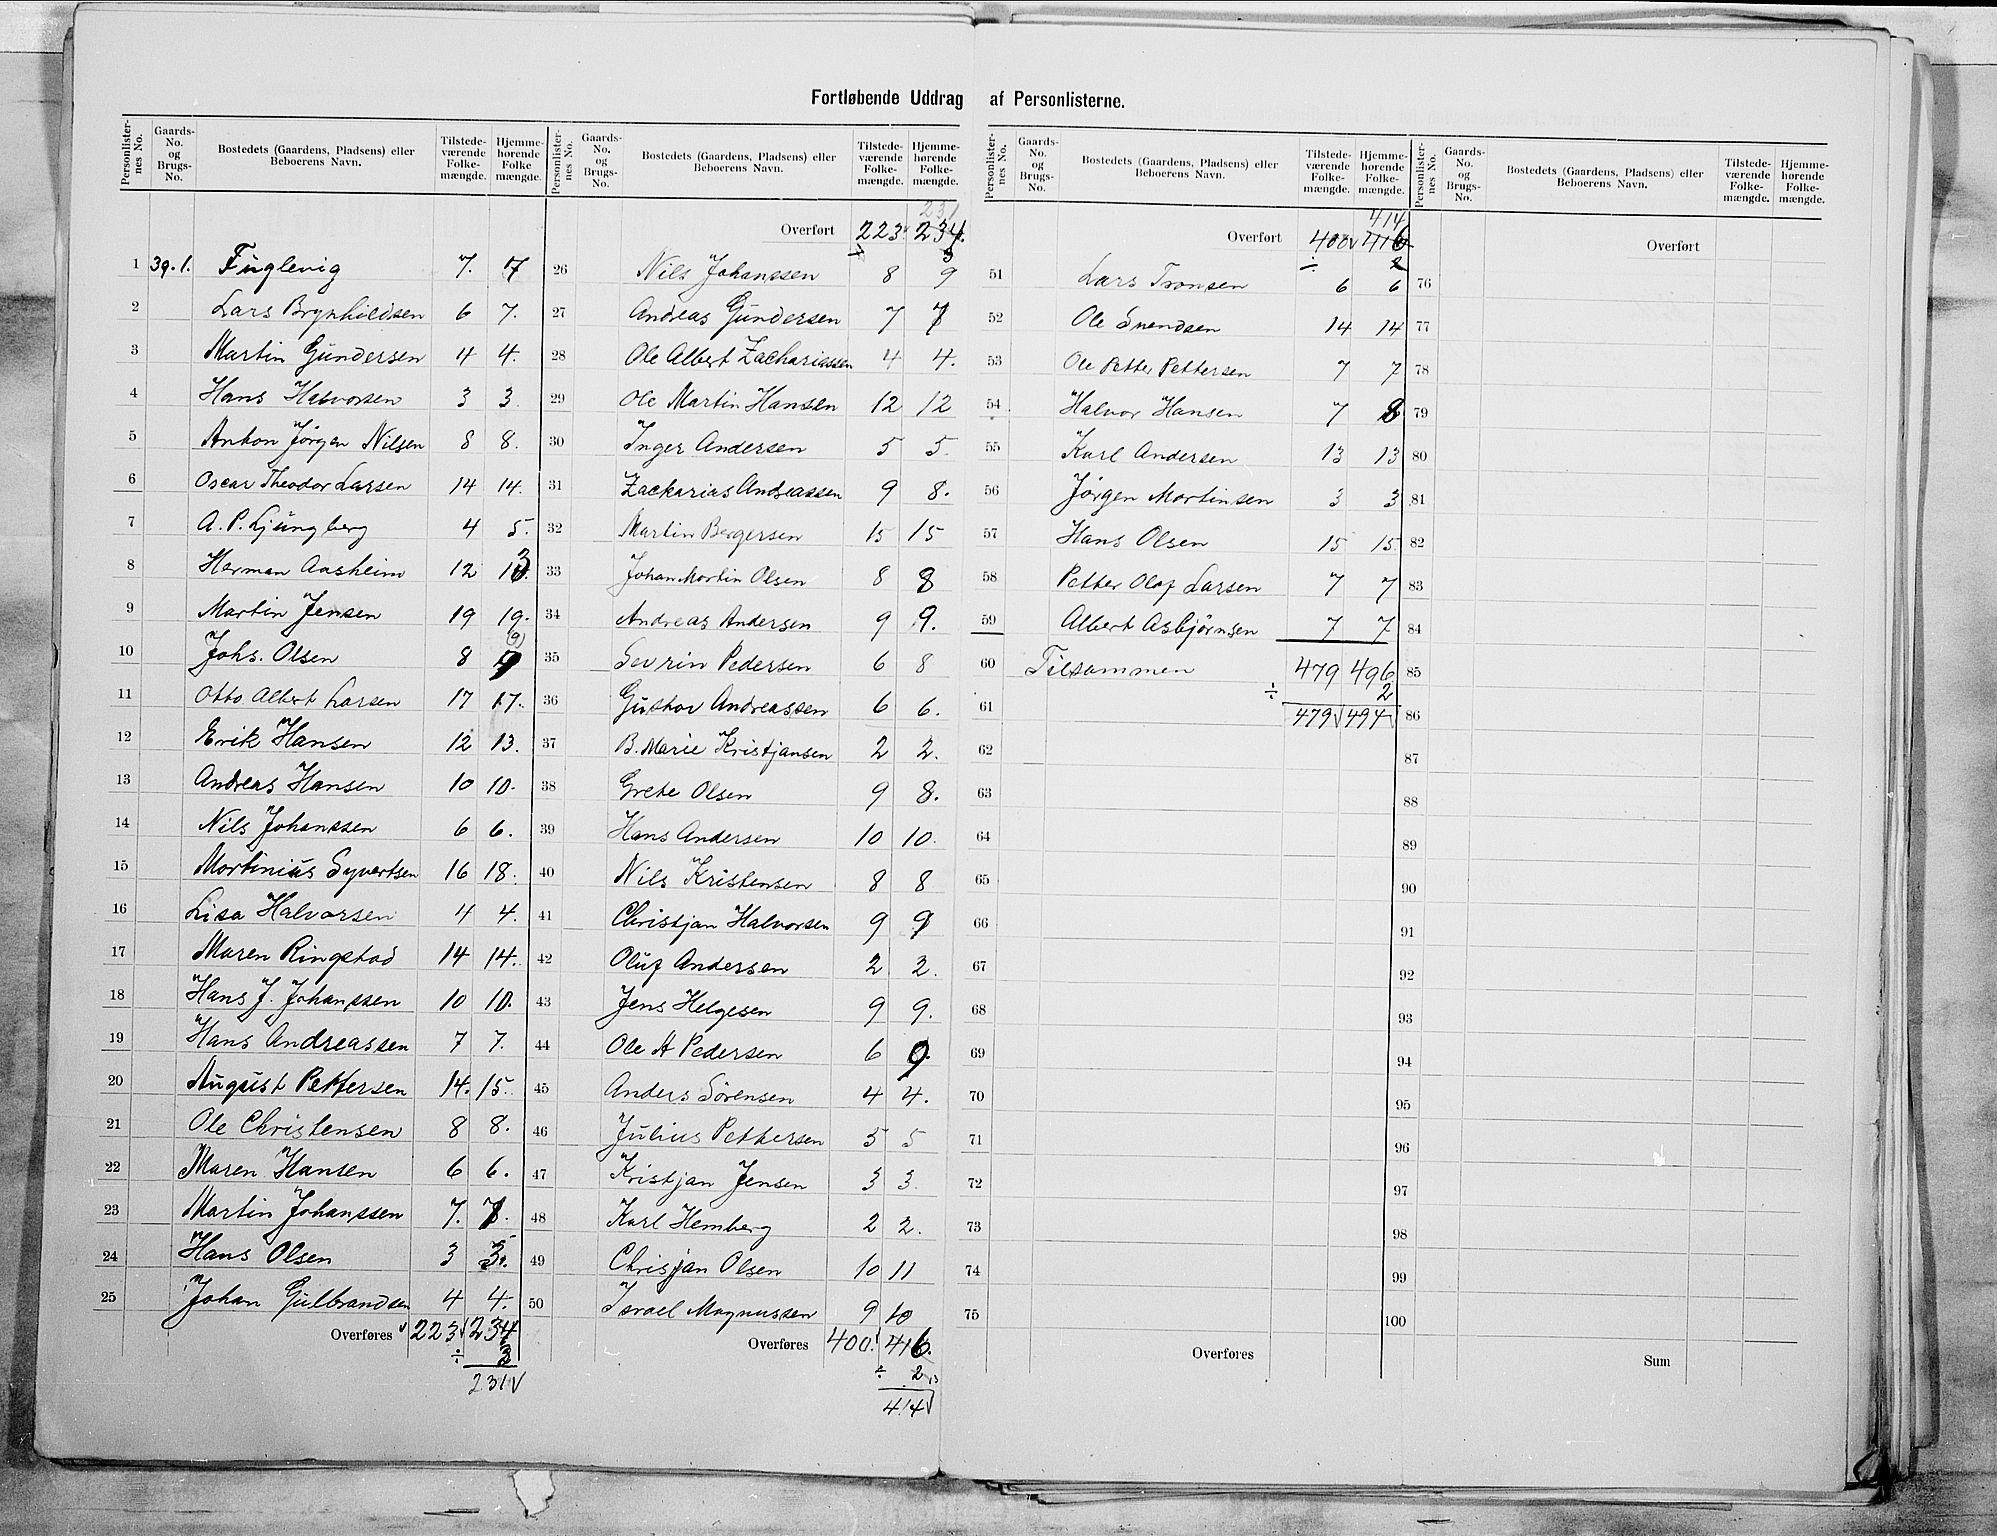 Fortløbende Uddrag af Personlisterne.
Personlister-nes No. Gaards-No. og Brugs-No. Bostedets (Gaardens, Pladsens) eller Beboerens Navn. Tilstede-værende Folke-mængde. Hjemme-hørende Folke mængde.
1 39.1. Fuglevig 7. 7
2 Lars Brynhildsen 6 7.
3 Martin Gundersen 4 4.
4 Hans Halvorsen 3 3
5 Anton Jørgen Nilsen 8 8.
6 Oscar Theodor Larsen 14 14.
7 A. P. Ljungberg 4 5.
8 Herman Aasheim 12
9 Martin Jensen 19 19.
10 Johs. Olsen 8 9 (9)
11 Otto Albert Larsen 17 17.
12 Erik Hansen 12 13.
13 Andreas Hansen 10 10.
14 Nils Johanssen 6 6.
15 Mortinius Syvertsen 16 18.
16 Lisa Halvorsen 4 4.
17 Maren Ringstad 14 14.
18 Hans J. Johanssen 10 10.
19 Hans Andreassen 7 7.
20 August Pettersen 14. 15.
21 Ole Christensen 8 8.
22 Maren Hansen 6 6.
23 Martin Johanssen 7.
24 Hans Olsen 3 3.
25 Johan Gulbrandsen 4 4.
Overføres 223 234
÷ 3
231
Personlister-nes No. Gaards-No. og Brugs-No. Bostedets (Gaardens, Pladsens) eller Beboerens Navn. Tilstede-værende Folke-mængde. Hjemme-hørende Folke-mængde.
231
Overført 223 234.
÷ 3
26 Nils Johanssen 8 9
27 Andreas Gundersen 7 7
28 Ole Albert Zachariassen 4 4.
29 Ole Martin Hansen 12 12
30 Inger Andersen 5 5.
31 Zackarias Andreassen 9 8.
32 Martin Bergersen 15 15
33 Johan Martin Olsen 8 8
34 Andreas Andersen 9 9.
35 Sevrin Pedersen 6 8
36 Gustav Andreassen 6 6.
37 B. Marie Kristjansen 2 2.
38 Grete Olsen 9 8.
39 Hans Andersen 10 10.
40 Nils Kristensen 8 8
41 Christjan Halvorsen 9 9
42 Oluf Andersen 2 2.
43 Jens Helgesen 9 9.
44 Ole A Pedersen 6 9.
45 Anders Sörensen 4 4.
46 Julius Pettersen 5 5
47 Kristjan Jensen 3 3.
48 Karl Hemberg 2 2.
49 Chrisjan Olsen 10 11
50 Israel Magnussen 9 10
Overføres 400 416.
÷ 2
414
Personlister-nes No. Gaards-No. og Brugs-No. Bostedets (Gaardens, Pladsens) eller Beboerens Navn. Tilstede-værende Folke-mængde. Hjemme-hørende Folke-mængde.
414
Overført 400 416
÷ 2
51 Lars Tronsen 6 6
52 Ole Svendsen 14 14
53 Ole Petter Pettersen 7 7
54 Halvor Hansen 7 8
55 Karl Andersen 13 13
56 Jørgen Mortinsen 3 3
57 Hans Olsen 15 15
58 Petter Olaf Larsen 7 7
59 Albert Asbjørnsen 7 7
60 Tilsammen 479 496
÷ 2
61 479 494
62
63
64
65
66
67
68
69
70
71
72
73
74
75
Overføres
Personlister-nes No. Gaards-No. og Brugs-No. Bostedets (Gaardens, Pladsens) eller Beboerens Navn. Tilstede-værende Folke-mængde. Hjemme-hørende Folke-mængde.
Overført
76
77
78
79
80
81
82
83
84
85
86
87
88
89
90
91
92
93
94
95
96
97
98
99
100
Sum